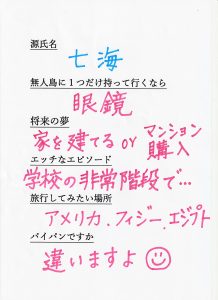 源氏名
七海
無人島に1つだけ持って行くなら
眼鏡
将来の夢
家を建てる or マンション購入
エッチなエピソード
学校の非常階段で…
旅行してみたい場所
アメリカ.フィジー.エジプト
パイパンですか
違いますよ☺